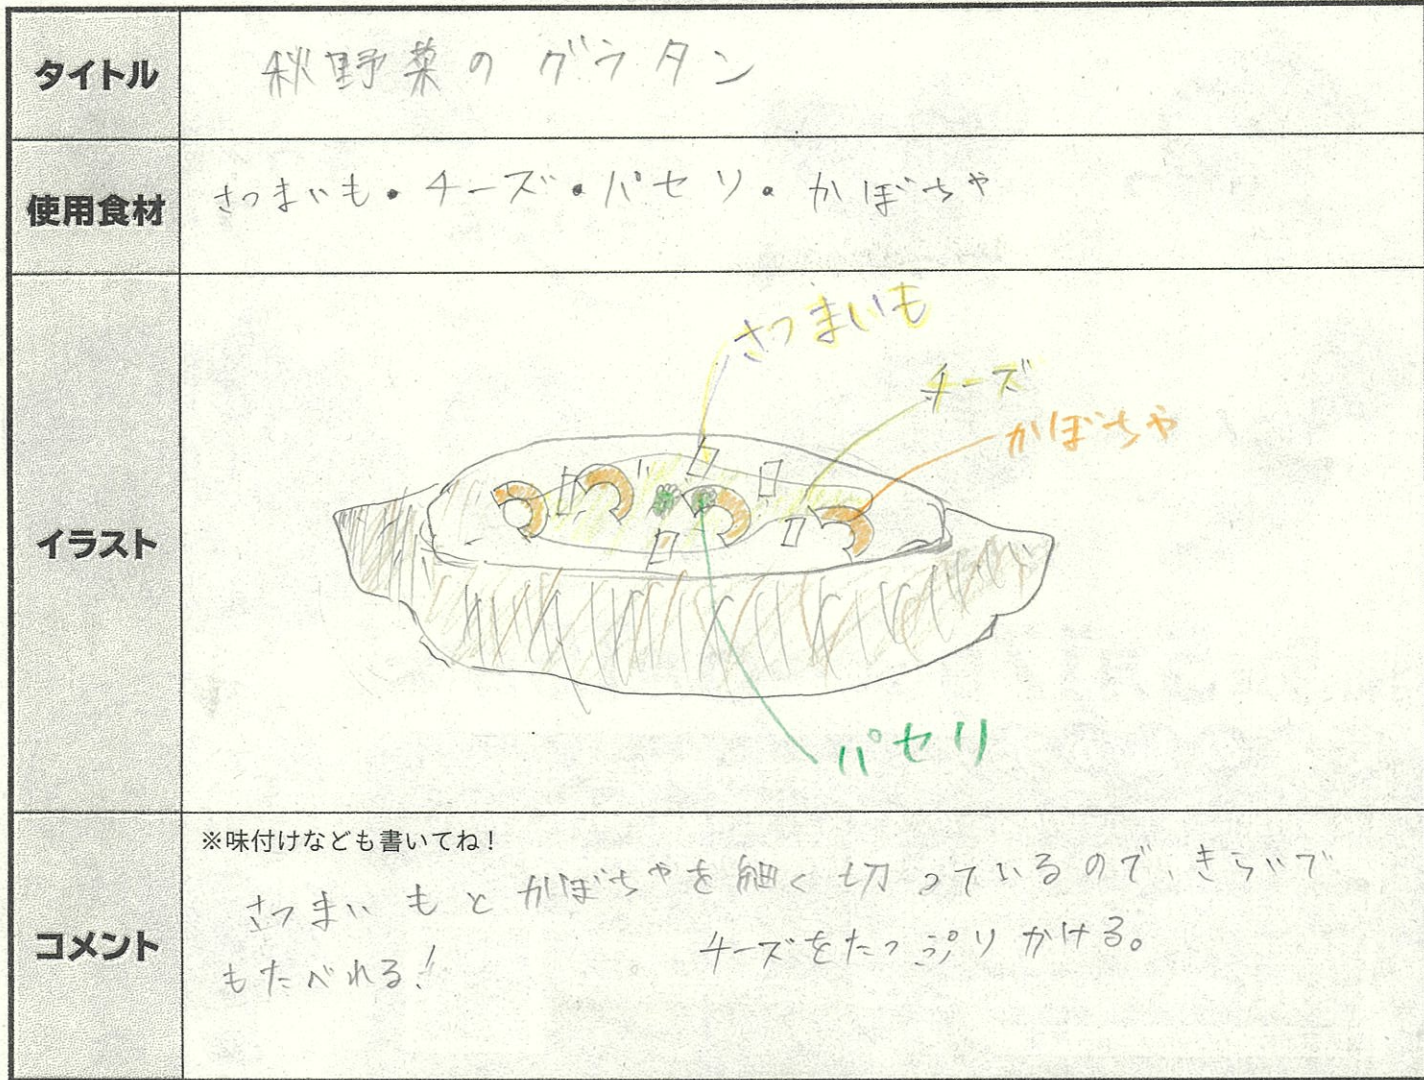 タイトル
秋野菜のグラタン
使用食材
さつまいも・チーズ・パセリ・かぼちゃ
イラスト
さつまいも
チーズ
かぼちゃ
パセリ
コメント
※味付けなども書いてね！
さつまいもとかぼちゃを細く切っているので、きらいで
もたべれる！
チーズをたっぷりかける。